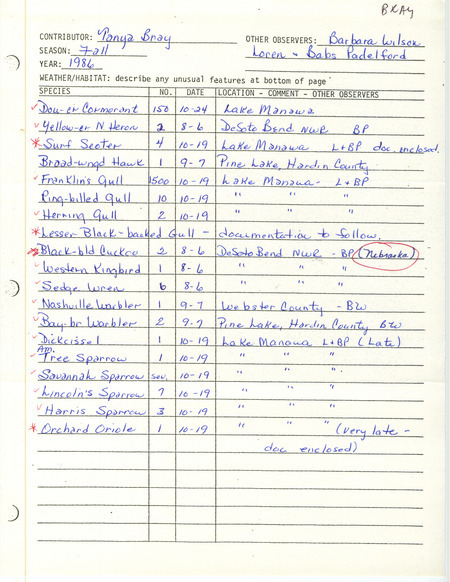 BRAY
CONTRIBUTOR: Tanya Bray OTHER OBSERVERS: Barbara Wilson
SEASON: Fall Loren - Babs Padelford
YEAR: 1986
WEATHER/HABITAT: describe any unusual features at bottom of page
SPECIES NO. DATE LOCATION - COMMENT - OTHER OBSERVERS
Dou-cr Cormorant 150 10-24 Lake Manawa
Yellow-cr N Heron 2 8-6 DeSoto Bend NWR BP
* Surf Scoter 4 10-19 Lake Manawa L+BP doc. enclosed.
Broad-wngd Hawk 1 9-7 Pine Lake, Hardin County
Franklin's Gull 1500 10-19 Lake Manawa - L+BP
Ring-billed Gull 10 10-19 " "
Herring Gull 2 10-19 " "
* Lesser Black-backed Gull - documentation to follow.
* Black-bld Cuckoo 2 8-6 DeSoto Bend NWR - BP (Nebraska)
Western Kingbird 1 8-6 " " "
Sedge Wren 6 8-6 " " "
Nashville Warbler 1 9-7 Webster County - BW
Bay-br Warbler 2 9-7 Pine Lake, Hardin County BW
Dickcissel 1 10-19 Lake Manawa L+BP (Late)
Am. Tree Sparrow 1 10-19 " " "
Savannah Sparrow sev. 10-19 " " "
Lincoln's Sparrow 7 10-19 " " "
Harris Sparrow 3 10-19 " " "
* Orchard Oriole 1 10-19 " " " (very late -
doc enclosed)